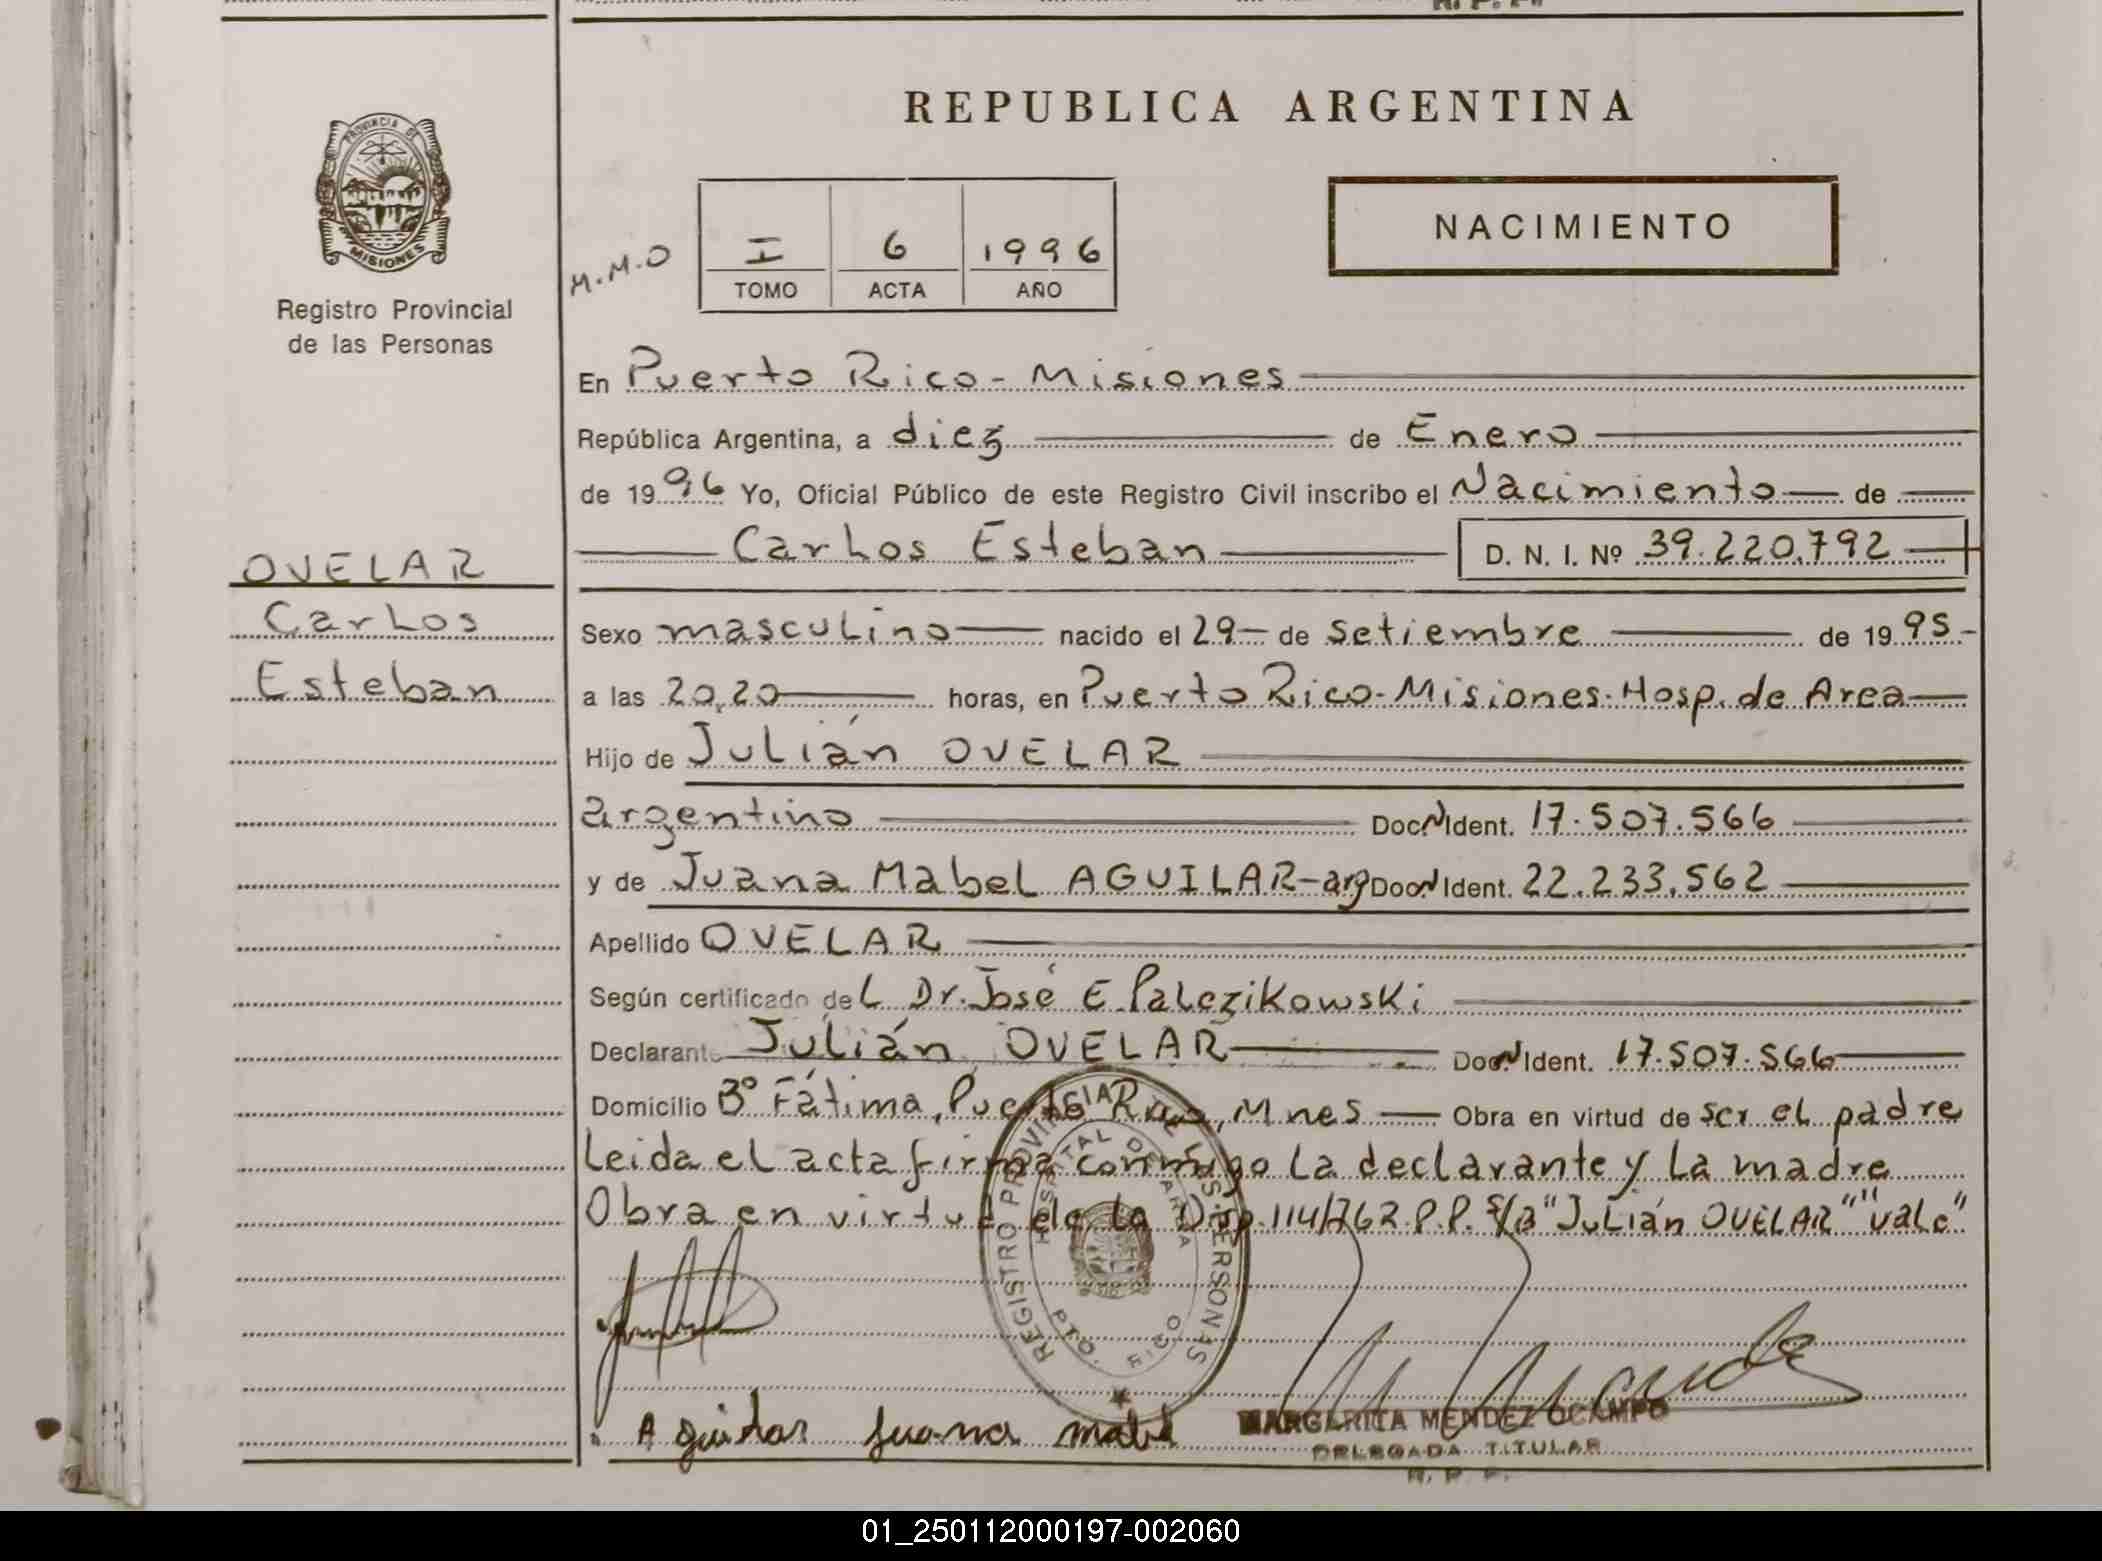 R. P. P.
REPUBLICA ARGENTINA
PROVINCIA DE MISIONES
Registro Provincial
de las Personas
M.M.O
I 6 1996
TOMO ACTA AÑO
NACIMIENTO
En Puerto Rico - Misiones
República Argentina, a diez de Enero
de 1996 Yo, Oficial Público de este Registro Civil inscribo el Nacimiento de
Carlos Esteban D. N. I. Nº 39.220.792
OVELAR
Carlos
Esteban
Sexo masculino nacido el 29 de Setiembre de 1995.-
a las 20,20 horas, en Puerto Rico-Misiones-Hosp. de Area
Hijo de Julián OVELAR
argentino Doc N Ident. 17.507.566
y de Juana Mabel AGUILAR-arg Doc N Ident. 22.233.562
Apellido OVELAR
Según certificado del Dr. José E. Palczikowski
Declarante Julián OVELAR Doc N Ident. 17.507.566
Domicilio Bº Fátima, Puerto Rico, Mnes Obra en virtud de ser el padre
Leida el acta firma conmigo la declarante y la madre
Obra en virtud de la Disp. 114/76 R.P.P. S/B "Julián OVELAR" "vale"
REGISTRO PROVINCIAL DE LAS PERSONAS
HOSPITAL DE AREA
PTO. RICO
Aguilar Juana Mabel
MARGARITA MENDEZ OCAMPO
DELEGADA TITULAR
R. P. P.
01_250112000197-002060